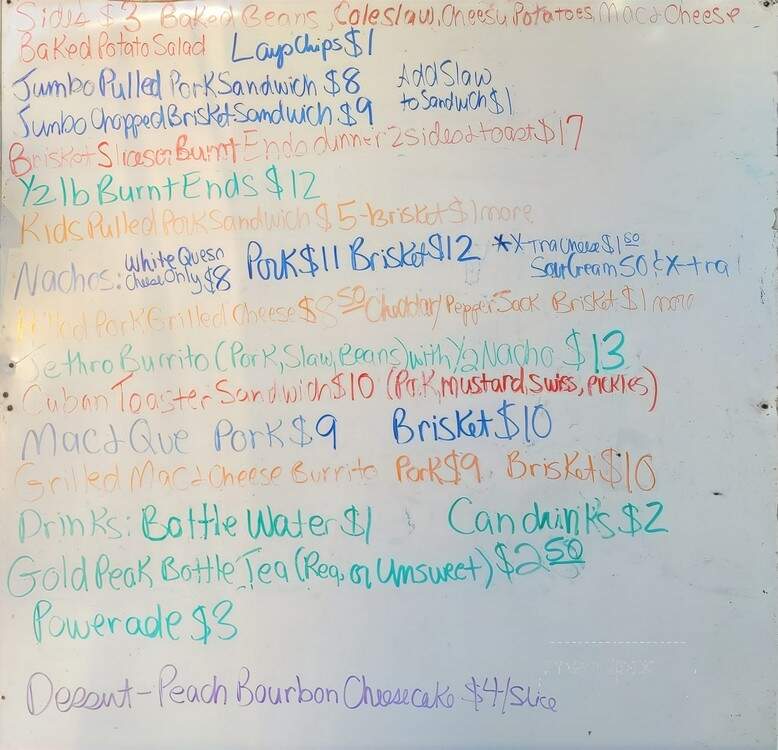 Sides $3 Baked Beans, Coleslaw, Cheesy Potatoes, Mac & Cheese
Baked Potato Salad Lays Chips $1
Jumbo Pulled Pork Sandwich $8 Add Slaw
to Sandwich $1
Jumbo Chopped Brisket Sandwich $9
Brisket Slices or Burnt Ends dinner 2 sides & toast $17
1/2 lb Burnt Ends $12
Kids Pulled Pork Sandwich $5 - Brisket $1 more
Nachos: White Queso Cheese Only $8 Pork $11 Brisket $12 *X-tra Cheese $1 50
Sour Cream 50¢ X-tra
Pulled Pork Grilled Cheese $8 50 Cheddar/Pepper Jack Brisket $1 more
Jethro Burrito (Pork, Slaw, Beans) with 1/2 Nacho $13
Cuban Toaster Sandwich $10 (Pork, mustard, Swiss, PICKLES)
Mac & Que Pork $9 Brisket $10
Grilled Mac & Cheese Burrito Pork $9 Brisket $10
Drinks: Bottle Water $1 Can drinks $2
Gold Peak Bottle Tea (Reg. or Unsweet) $2 50
Powerade $3
Dessert - Peach Bourbon Cheesecake $4/slice